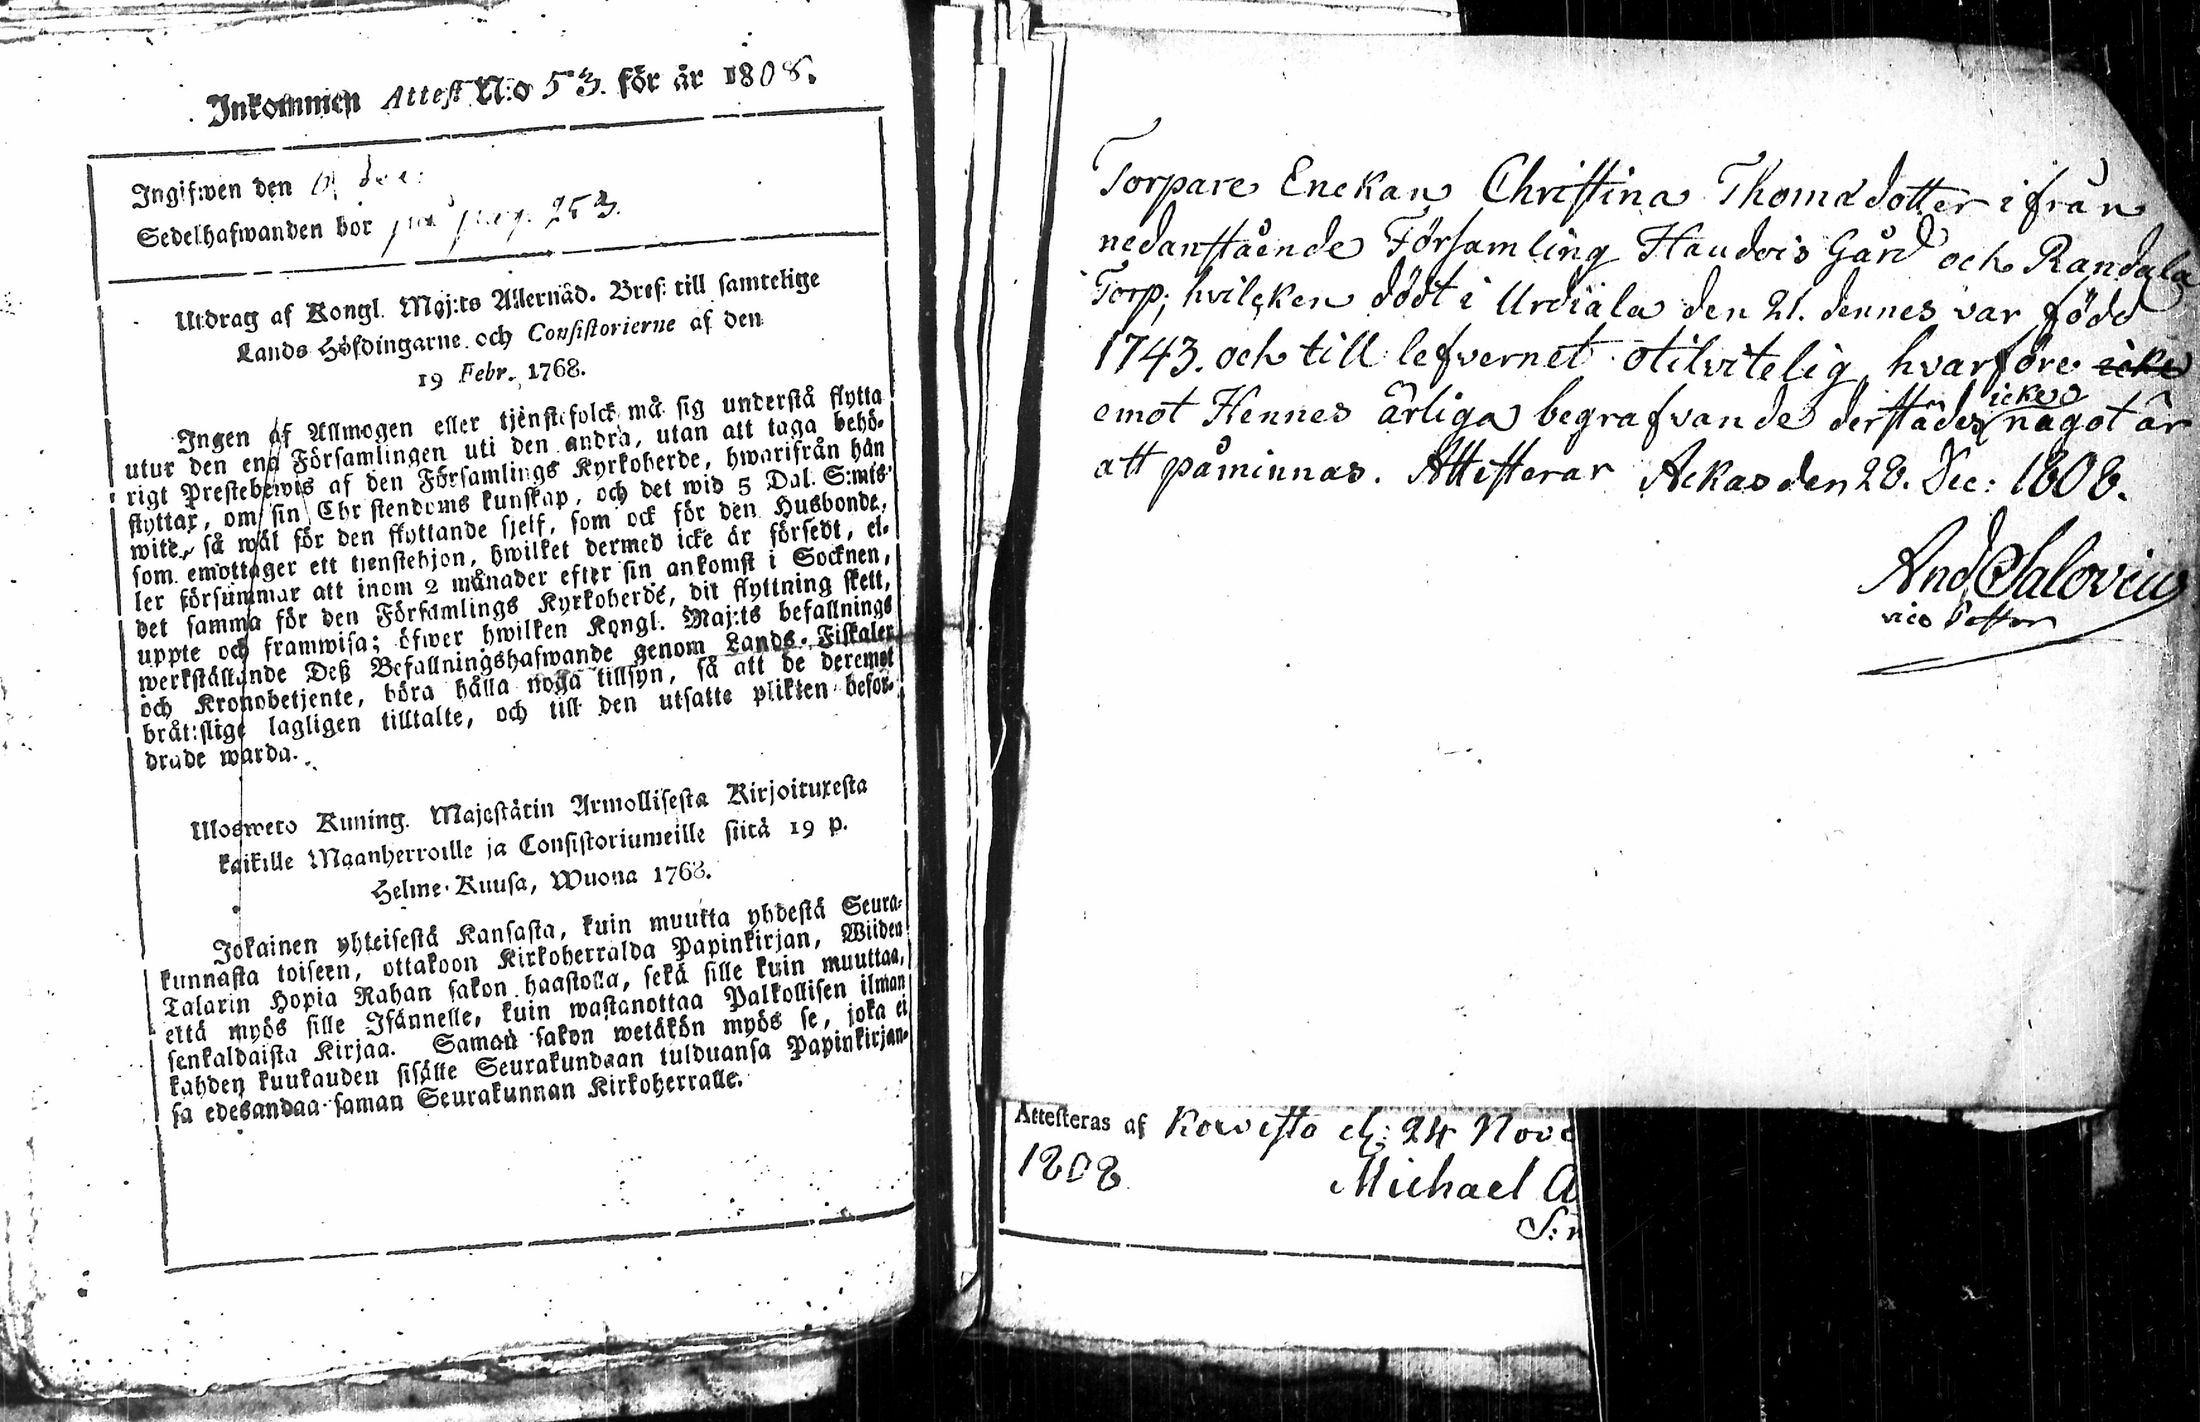 Inkommen Attest N:o 53. för år 1808.
Ingifwen den dec:
Sedelhafwanden bor på pag. 253.
Utdrag af Kongl. Maj:ts Allernåd. Bref: till samtelige
Lands Höfdingarne och Consistorierne af den
19 Febr. 1768.
Ingen af Allmogen eller tjenstefolck må sig understå flytta
utur den ena Församlingen uti den andra, utan att taga behö-
rigt Prestebewis af den Församlings Kyrkoherde, hwarifrån han
flyttar, om sin Christendoms kunskap, och det wid 5 Dal. S:mts
wite, så wäl för den flyttande sjelf, som ock för den Husbonde,
som emottager ett tjenstehjon, hwilket dermed icke är försedt, el-
ler försummar att inom 2 månader efter sin ankomst i Socknen,
det samma för den Församlings Kyrkoherde, dit flyttning skett,
uppte och framwisa; öfwer hwilken Kongl. Maj:ts befallnings
werkställande Deß Befallningshafwande genom Lands-Fiskaler
och Kronobetjente, böra hålla noga tillsyn, så att de deremot
bråtslige lagligen tilltalte, och till den utsatte plikten befor-
drade warda.
Uloswero Kuning. Majestätin Armollisesta Kirjoituxesta
kaikille Maanherroille ja Consistoriumeille siitä 19 p.
Helme-Kuusa, Wuona 1768.
Jokainen yhteisestä Kansasta, kuin muutta yhdestä Seura-
kunnasta toiseen, ottakoon Kirkoherralda Papinkirjan, Wiiden
Talarin Hopia Rahan sakon haastolla, sekä sille kuin muuttaa,
että myös sille Isännelle, kuin wastanottaa Palkollisen ilman
senkaldaista Kirjaa. Saman sakon wetäkön myös se, joka ei
kahden kuukauden sisälle Seurakundaan tulduansa Papinkirjan-
sa edesandaa saman Seurakunnan Kirkoherralle.
Torpare Enckan Christina Thomadotter ifrån
nedanstående Församling Haudois Gård och Randala
Torp; hvilcken dödt i Urdiala den 21. dennes var född
1743. och till lefvernet otilvitelig, hvarföre icke
emot Hennes ärliga begrafvande derstädes icke något är
att påminnas. Attesterar Ackas den 28. Dec: 1808.
And Salovius
vice Pastor
Attesteras af Korvisto d: 24 Nove
1808
Michael A
S:n